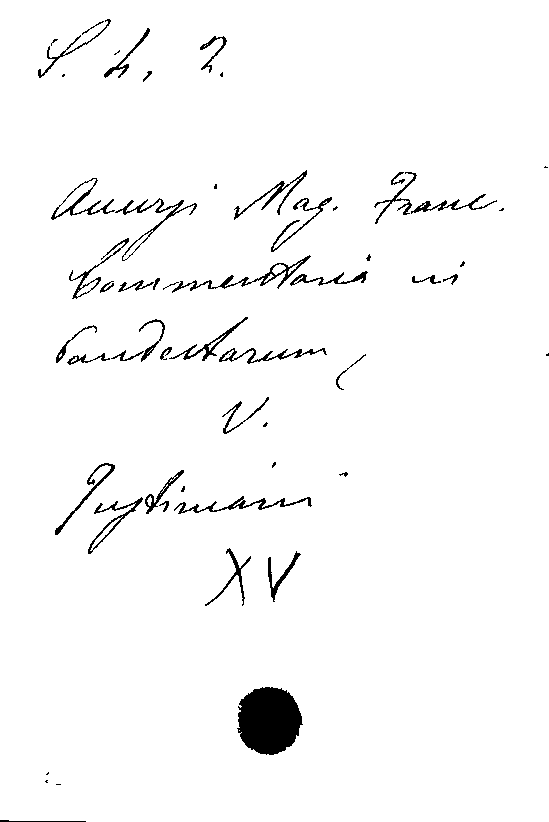 S. L. 2.
Accursi Mag. Franc.
Commentaria in
Pandectarum,
V.
Justiniani
XV